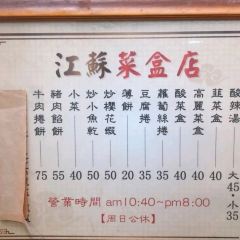 江蘇菜盒店
酸辣湯 大45・小35
韮菜盒 40
高麗菜盒 40
酸菜盒 40
蘿蔔絲捲 35
豆腐捲 35
薄餅 20
炒櫻花蝦 40
炒小魚乾 50
小菜 40
豬肉餡餅 55
牛肉捲餅 75
營業時間 am10:40~pm8:00
【周日公休】